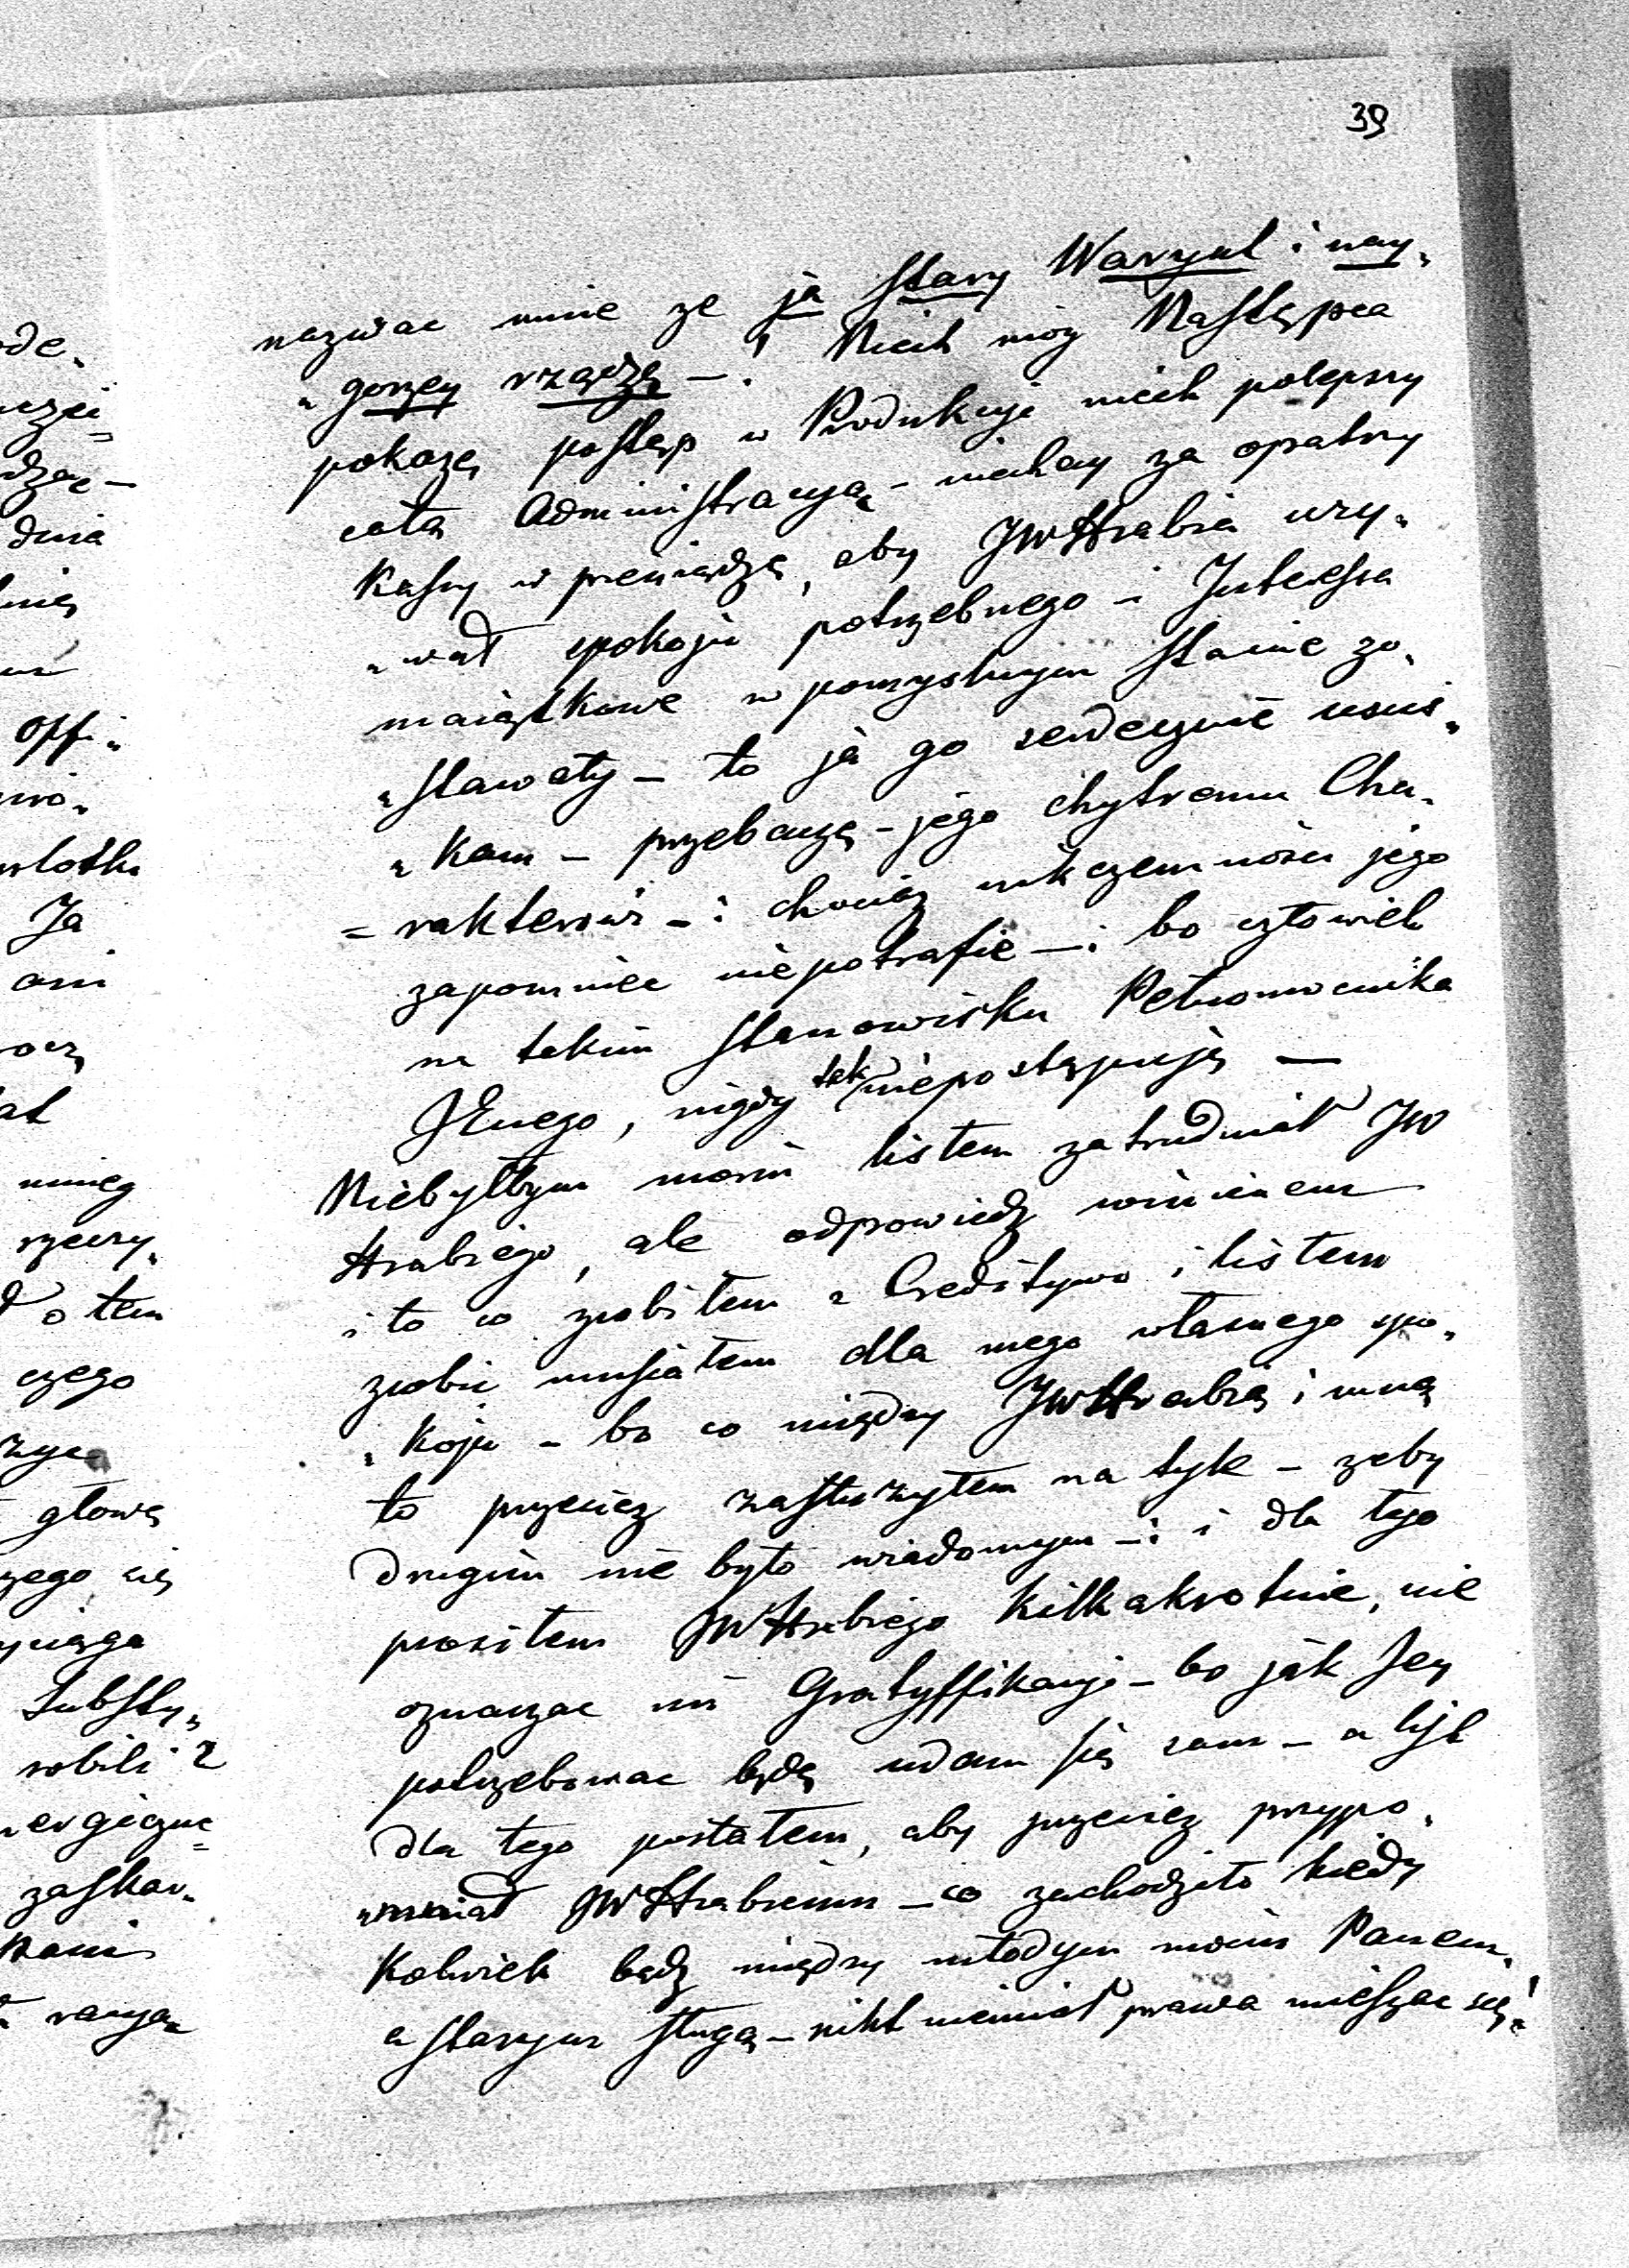 39
nazwac mnie ze ja stary Waryat i nay„
„gorzey rządzę —. Niech móy Następca
pokazę postęp w Produkcyi niech polepszy
całą Administracyą — niechay za opatrzy
Kassy w pieniądze, aby JWHrabia uży„
„wał spokoju potrzebnego — i Interessa
maiątkowe w pomyslnym stanie zo„
„stawały — to ja go serdecznie usciś„
„kam — przebaczę — jego chytremu Cha„
= rakterowi —: chociaz nikczemności jego
zapomniec niepotrafie —: bo człowiek
na takim stanowisku Pełnomocnika
JEnego, nigdy tak niepostąpują —
Niebyłbym moim listem zatrudniał JW
Hrabiego, ale odpowiedz winienem
i to co zrobiłem z Creditywo i listem
zrobic musiałem dla mego własnego spo„
„koju — bo co między JWHrabią i mną
to przeciez zasłuzyłem na tyle — zeby
drugim nie było wiadomym —: i dla tego
prosiłem JWHrabiego kilkakrotnie, nie
oznaczac mi Gratyffikacyi — bo jak Jey
potrzebowac będę udam się sam — a list
dla tego posłałem, aby przeciez przypo„
„mniał JWHrabiemu — co zachodziło kiedy
kolwiek bądz między młodym moim Panem„
a starym sługą — nikt niemiał prawa mieszac się!
ode„
dzac —
dnia
offi„
Ja
ani
rzeczy„
o tem
czego
głowę
zego się
Substy„
robili 2
ergiczne
zaskar„